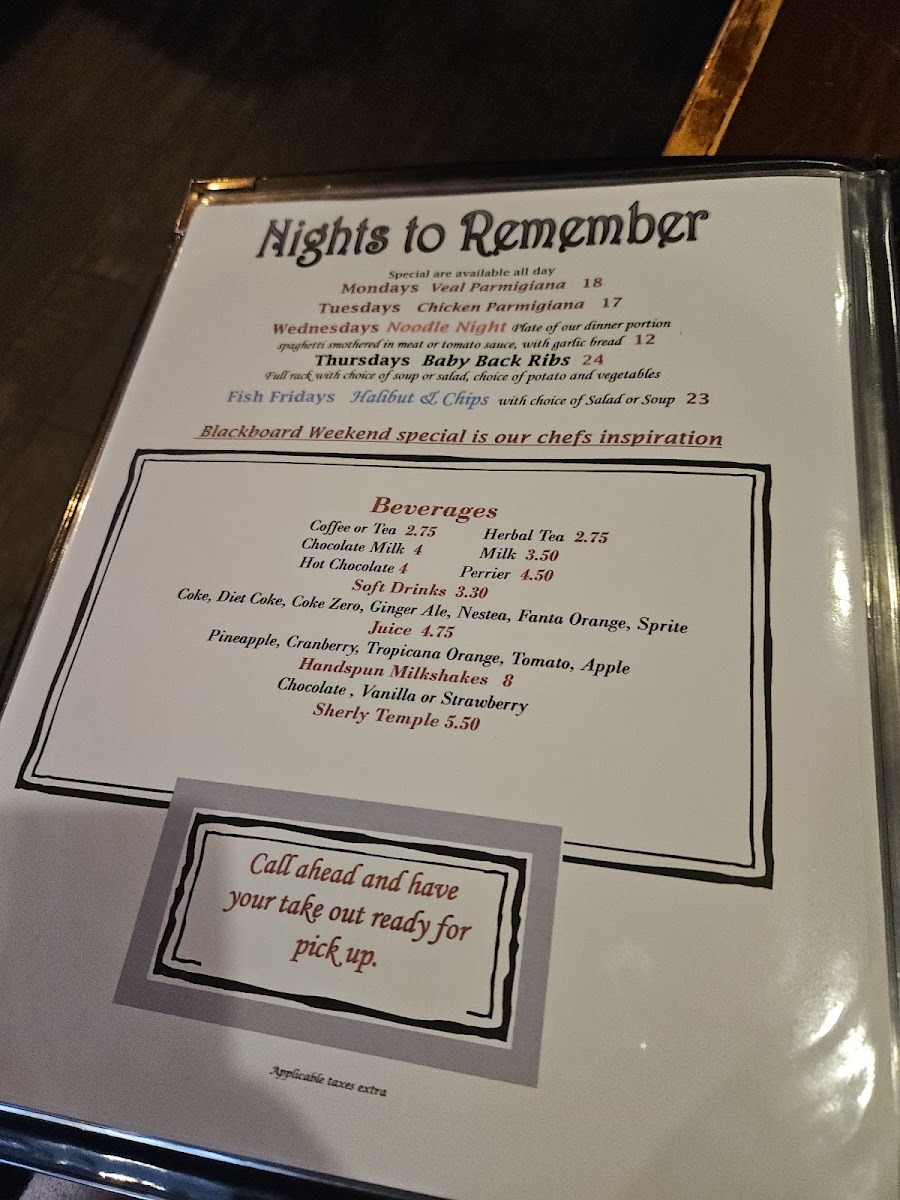 Nights to Remember
Special are available all day
Mondays Veal Parmigiana 18
Tuesdays Chicken Parmigiana 17
Wednesdays Noodle Night Plate of our dinner portion
spaghetti smothered in meat or tomato sauce, with garlic bread 12
Thursdays Baby Back Ribs 24
Full rack with choice of soup or salad, choice of potato and vegetables
Fish Fridays Halibut & Chips with choice of Salad or Soup 23
Blackboard Weekend special is our chefs inspiration
Beverages
Coffee or Tea 2.75 Herbal Tea 2.75
Chocolate Milk 4 Milk 3.50
Hot Chocolate 4 Perrier 4.50
Soft Drinks 3.30
Coke, Diet Coke, Coke Zero, Ginger Ale, Nestea, Fanta Orange, Sprite
Juice 4.75
Pineapple, Cranberry, Tropicana Orange, Tomato, Apple
Handspun Milkshakes 8
Chocolate , Vanilla or Strawberry
Sherly Temple 5.50
Call ahead and have
your take out ready for
pick up.
Applicable taxes extra